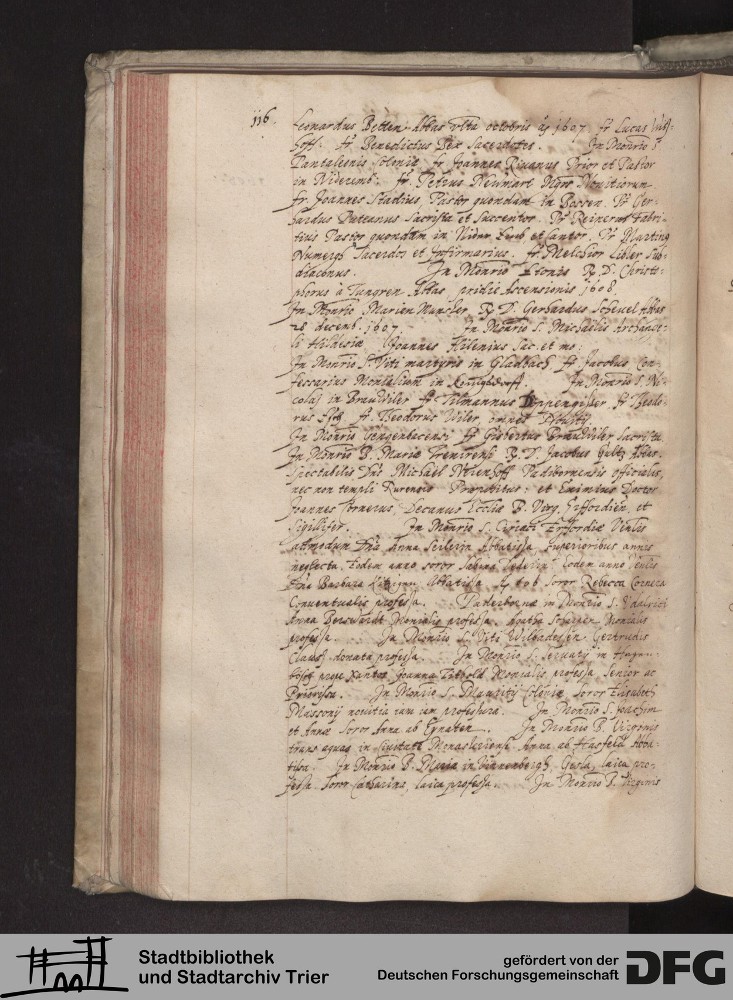 116.
Leonardus Betten Abbas ulta octobris aº 1607. fr Lucas
hoff. fr. Benedictus Bex Sacerdotes. In Monrio S.
Pantaleonis Coloniæ fr Joannes Rivanus Prior et Pastor
in Nideremb. fr. Petrus Neumart Mgro Novitiorum
fr. Joannes Stadius, Pastor quondam in Bossen. Fr. Ger-
hardus Puteanus Sacrista et Succentor. Fr Reinerus Fabri-
tius Pastor quondam in Nider et Cantor. Fr Martinus
Numerch Sacerdos et Infirmarius. fr. Melchior Libler Sub-
diaconus. In Monrio Stonis R. D. Christo-
phorus à Tungren Abbas pridie Ascensionis 1608.
In Monrio Marien Munster R. D. Gerhardus Scheuel Abbas
28 decemb. 1607. In Monrio S. Michaëlis Archange-
li Hildesiæ Joannes Hilenius Sac. et mo:
In Monrio S. Viti martyris in Gladbach fr Jacobus Con-
fessarius Monialium in Konigsdorff. In Monrio S. Ni-
colaj in Brauwiler fr Tilmannus Duppengiesser fr Theodo-
rus fr. Theodorus Wiler omnes
In Monrio Gengenbacensi fr Gisbertus Brauwiler Sacrista
In Monrio B. Mariæ Trevirensis R. D. Jacobus Gultz Abbas.
Spectabilis Dns Michaël Padibornensis officialis,
nec non templi Præpositus: et Eximius Doctor
Joannes Cornerus, Decanus Eccliæ B. Virg. Erffordien, et
Sigillifer. In Monrio S. Ciriaci Erffordiæ Venlis
admodum Dna Anna Abbatissa superioribus annis
neglecta. Eodem anno soror Sabina Eodem anno Venlis
Dna Barbara Abbatissa aº 606 Soror Rebecca Cornera
Conventualis professa. Paderbornæ in Monrio S. Udalrici
Anna Monialis professa Agatha Monialis
professa. In Monrio S. Viti Gertrudis
Clauss donata professa. In Monrio S. in Hagen-
busch prope Xantos Joanna Monialis professa Senior ac
Priorissa. In Monrio S. Mauritij Coloniæ soror Elisabeth
Massonij novitia cum iam professura. In Monrio S. Joachim
et Annæ soror Anna ab Eynaten. In Monrio B. Virginis
trans aquas in Civitate Monasteriensi Anna ab Hasfeld Abba-
tissa. In Monrio B. Maria in Vinnenbergh Gesla, laica pro-
fessa Soror Catharina, laica professa. In Monrio B. Virginis
Stadtbibliothek
und Stadtarchiv Trier
gefördert von der
Deutschen Forschungsgemeinschaft
DFG